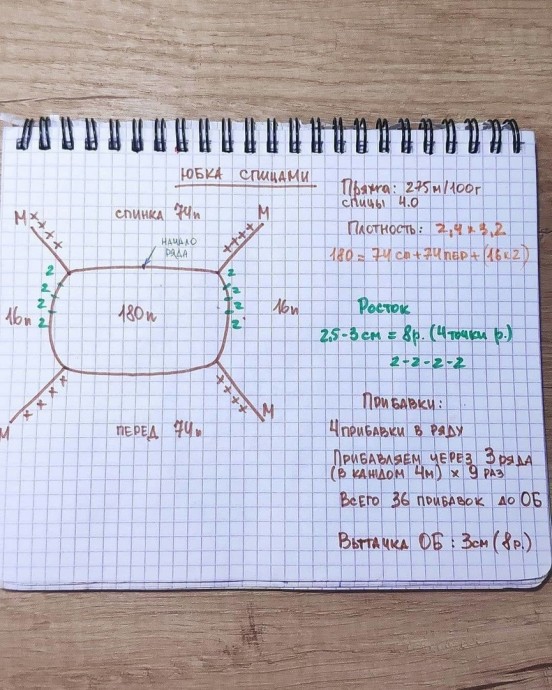 ЮБКА СПИЦАМИ
М
СПИНКА 74п
М
НАЧАЛО
РЯДА
2
2
2
2
16п
180п
2
2
2
2
16п
М
ПЕРЕД 74п
М
Пряжа: 275м/100г
спицы 4.0
Плотность: 2,4 х 3,2
180 = 74сп + 74пер + (16х2)
Росток
2,5-3см = 8р. (4 точки р.)
2-2-2-2
Прибавки:
4 прибавки в ряду
Прибавляем через 3 ряда
(в каждом 4м) х 9 раз
Всего 36 прибавок до ОБ
Вытачка ОБ: 3см (8р.)